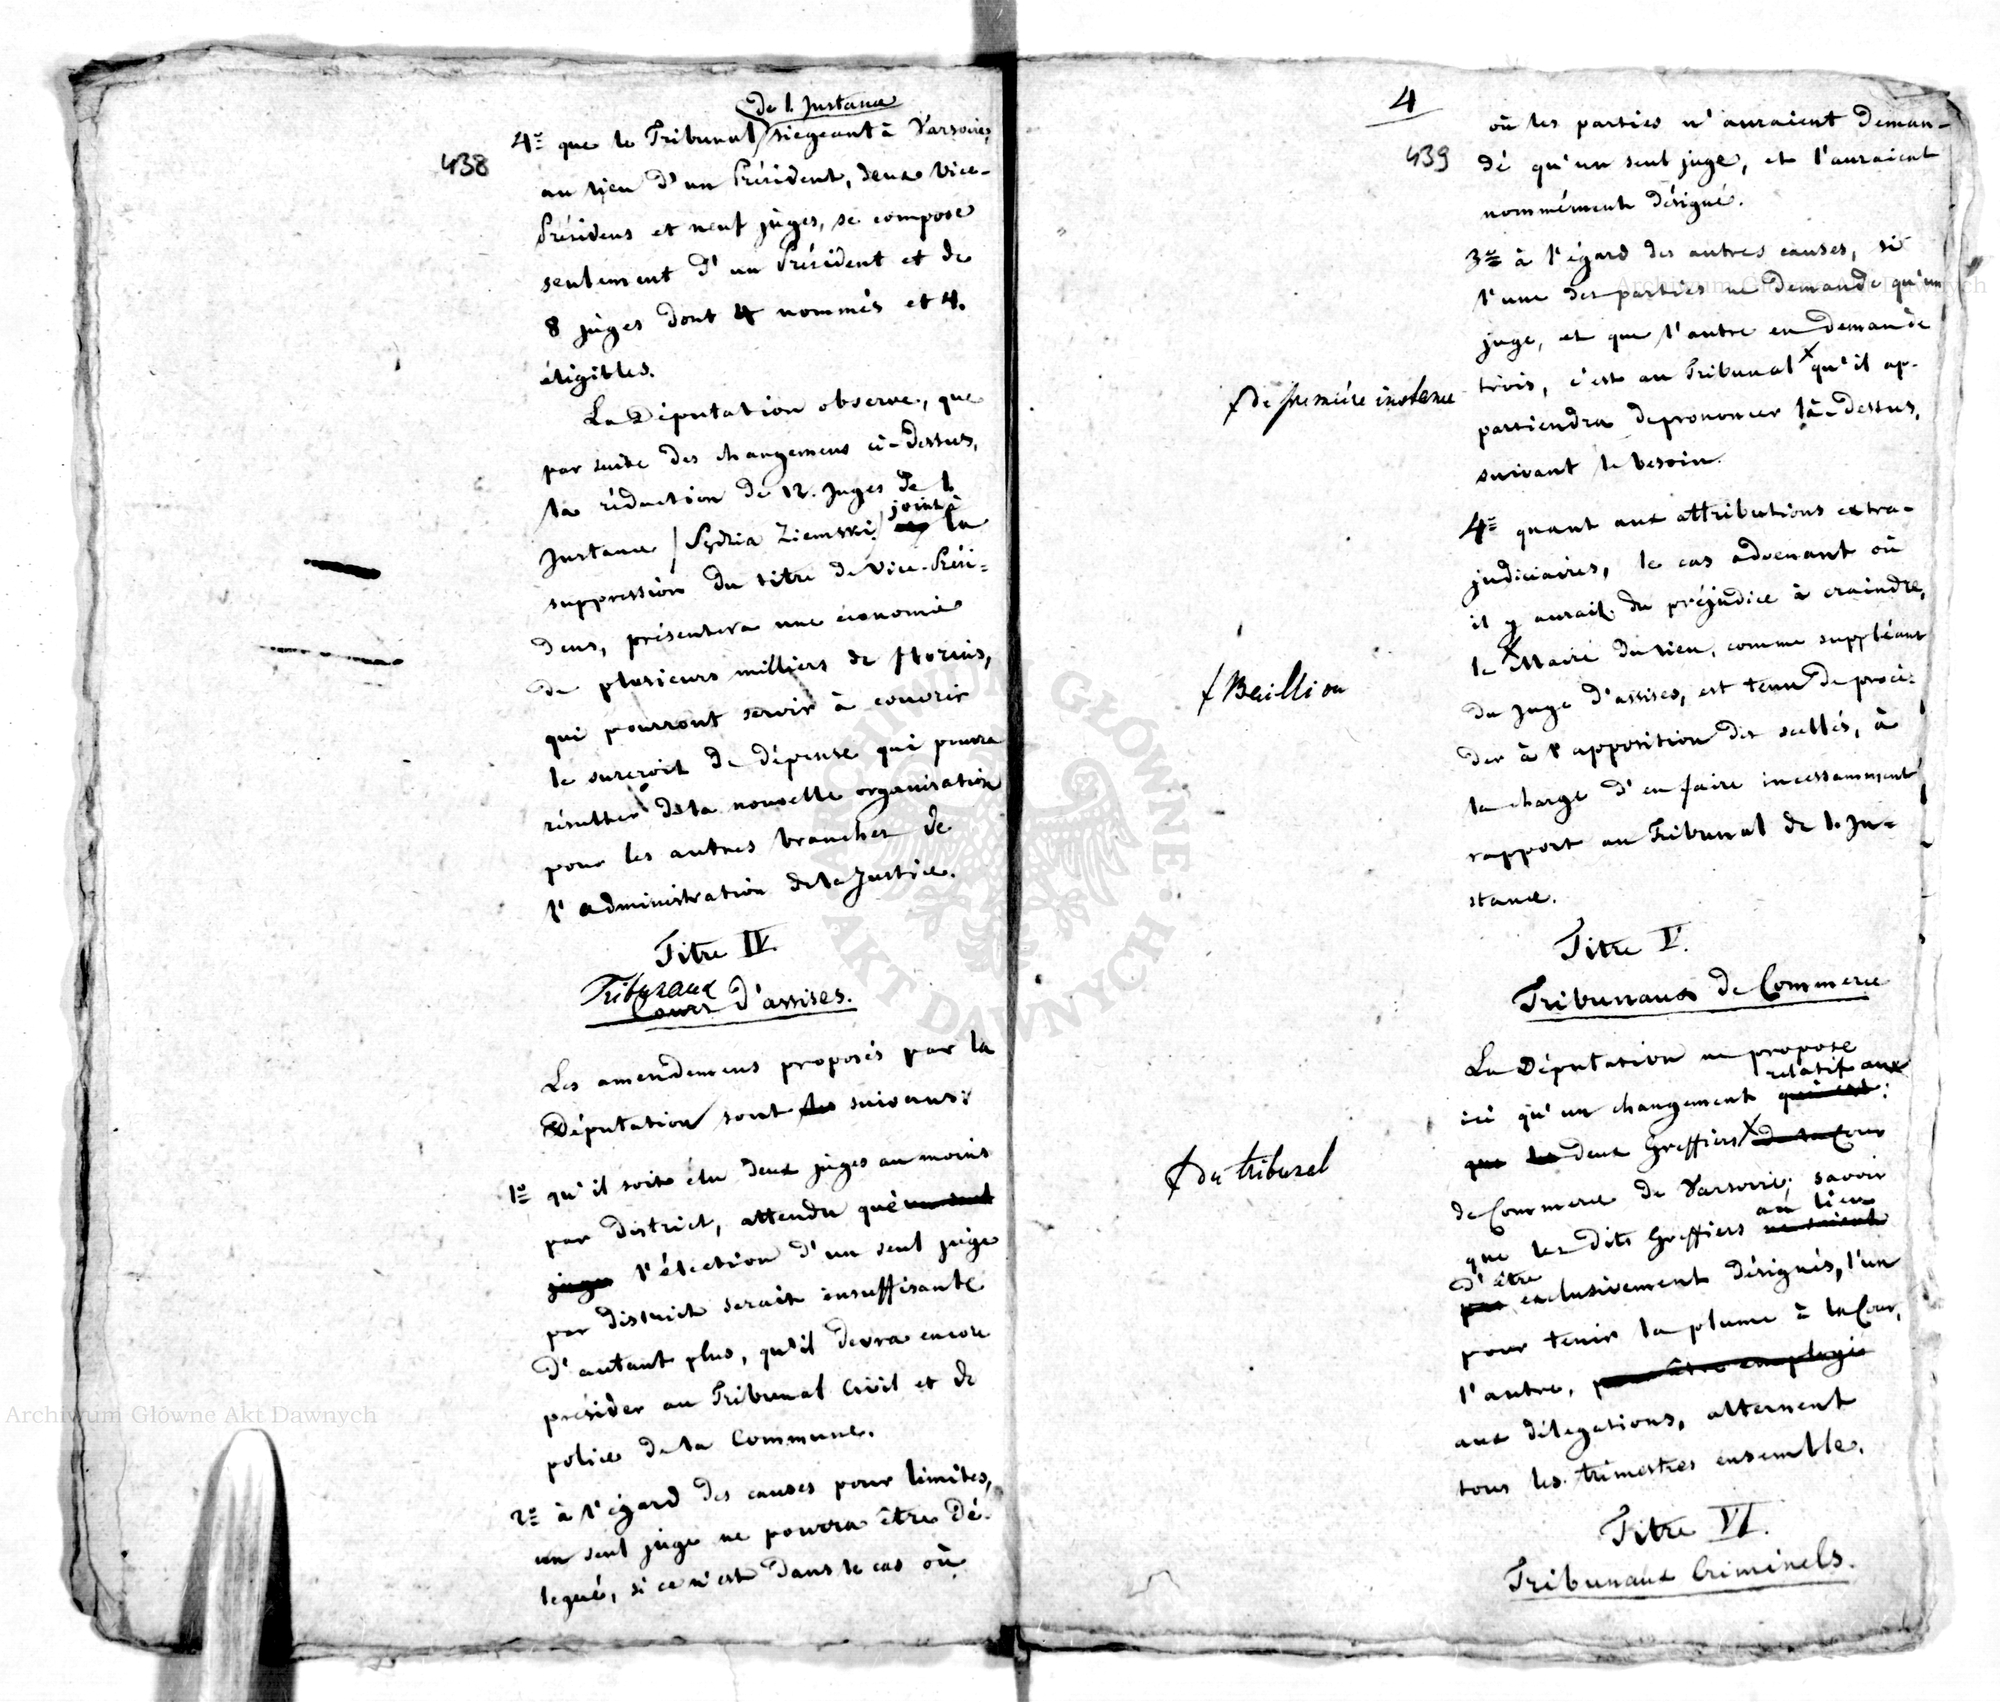 438
de 1. Instance
4º que le Tribunal siégeant à Varsovie,
au lieu d'un Président, deux Vice-
Présidens et neuf juges, se compose
seulement d'un Président et de
8 juges dont 4 nommés et 4.
éligibles.
La Députation observe, que
par suite des changemens ci-dessus,
la réduction de 12. Juges de 1.
joint à
Instance / Sędzia Ziemski / la
suppression du titre de Vice-Prési-
dens, présentera une économie
de plusieurs milliers de florins,
qui pourront servir à couvrir
le surcroit de dépense qui pourra
résulter de la nouvelle organisation
pour les autres branches de
l'administration de la Justice.
Titre IV.
Tribunaux
Cours d'assises.
Les amendemens proposés par la
Députation sont les suivans:
1º qu'il soit élu deux juges au moins
par district, attendu que un seul
juge l'élection d'un seul juge
par district serait insuffisante
d'autant plus, qu'il devra encore
présider au Tribunal Civil et de
police de la Commune.
2º à l'égard des causes pour limites,
un seul juge ne pourra être dé-
legué, si ce n'est dans le cas où
4
439
où les parties n'auraient deman-
dé qu'un seul juge, et l'auraient
nommément désigné.
3º à l'égard des autres causes, si
l'une des parties ne demande qu'un
juge, et que l'autre en demande
trois, c'est au Tribunal x qu'il ap-
x de première instance
partiendra de prononcer là-dessus,
suivant le besoin.
4º quant aux attributions extra-
judiciaires, le cas advenant où
il y aurait du préjudice à craindre,
le x Maire du lieu, comme suppléant
x Bailli ou
du Juge d'assises, est tenu de procé-
der à l'apposition des scellés, à
la charge d'en faire incessamment
rapport au Tribunal de 1. In-
stance.
Titre V.
Tribunaux de Commerce
La Députation ne propose
relatif aux
ici qu'un changement qui est:
que les deux Greffiers x de la Cour
x du tribunal
de Commerce de Varsovie; savoir
au lieu
que les dits Greffiers ne soient
d'être
pas exclusivement désignés, l'un
pour tenir la plume à la Cour,
l'autre, pour être employé
aux délégations, alternent
tous les trimestres ensemble.
Titre VI.
Tribunaux Criminels.
Archiwum Główne Akt Dawnych
Archiwum Główne Akt Dawnych
ARCHIWUM GŁÓWNE AKT DAWNYCH